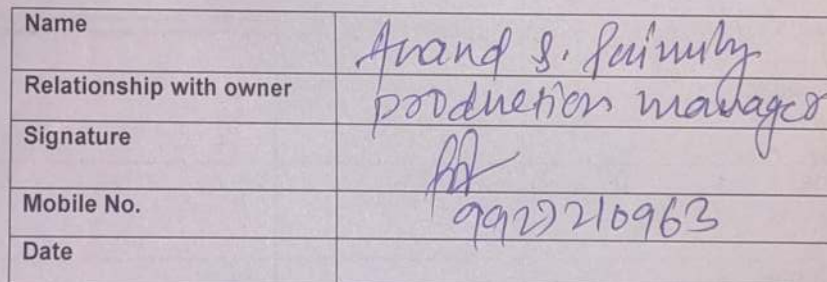 Name Anand S.
Relationship with owner production manager
Signature
Mobile No. 9927210963
Date